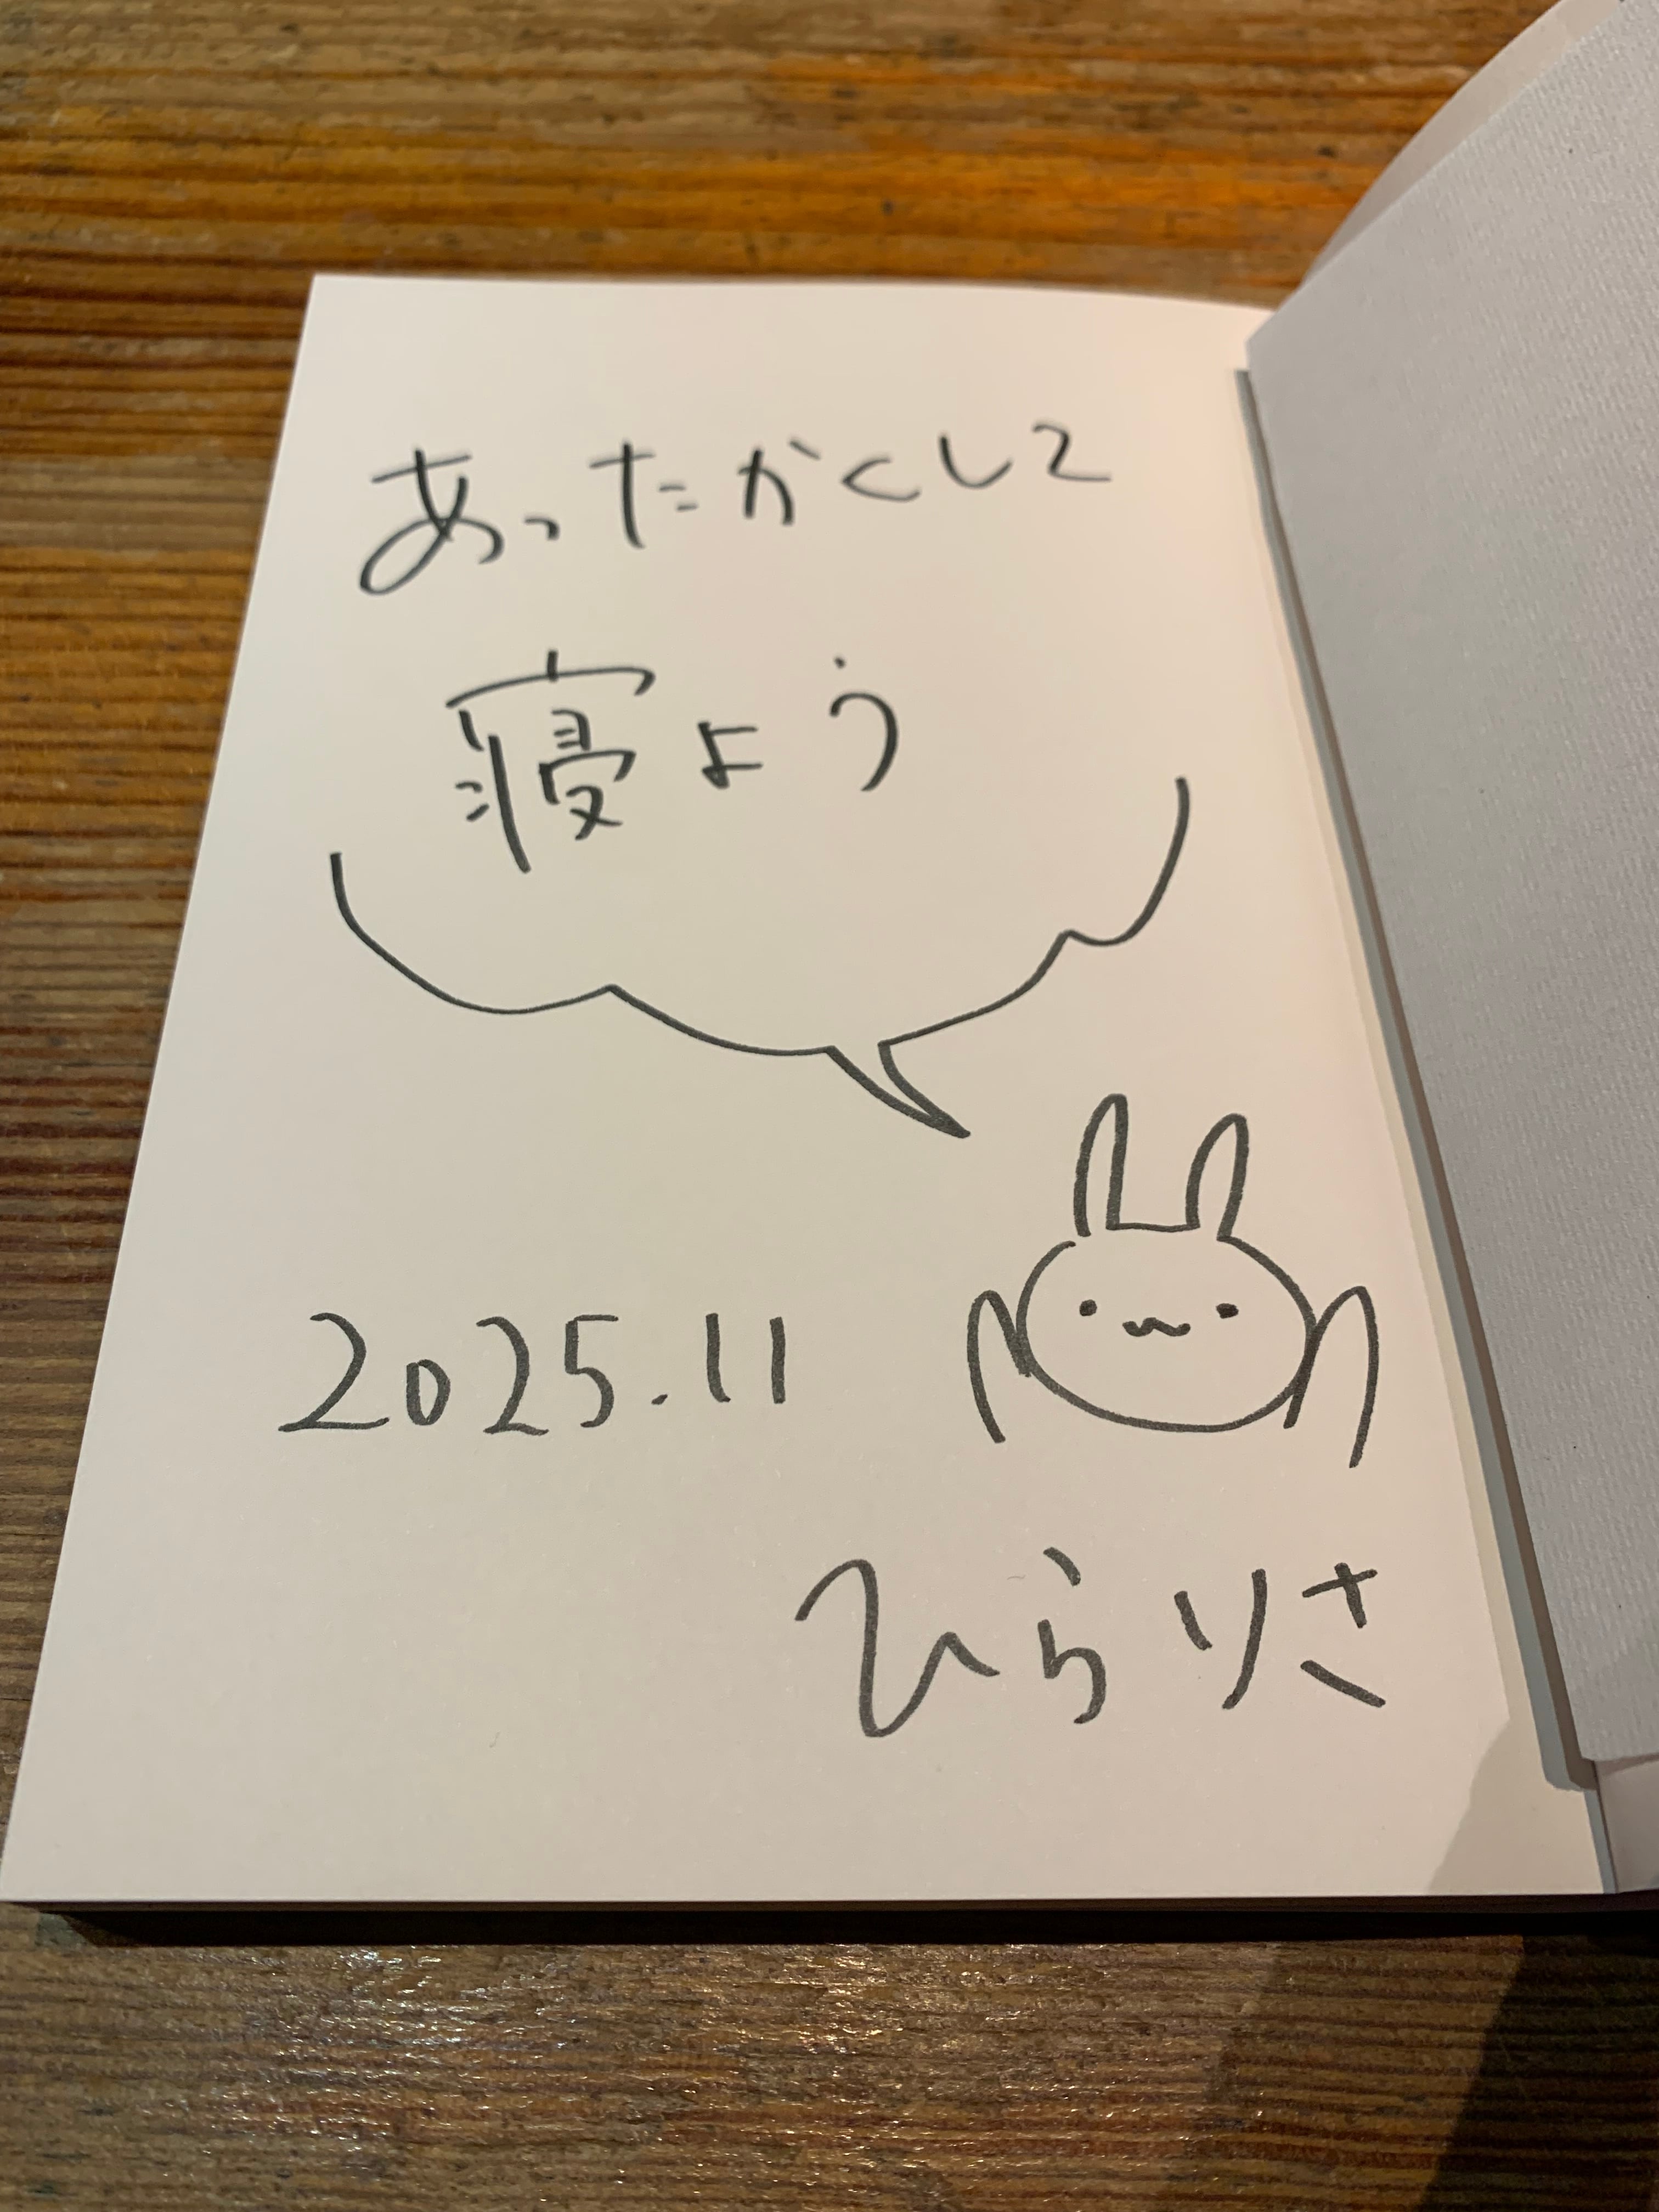 あったかくして
寝よう
2025.11
ひらりさ